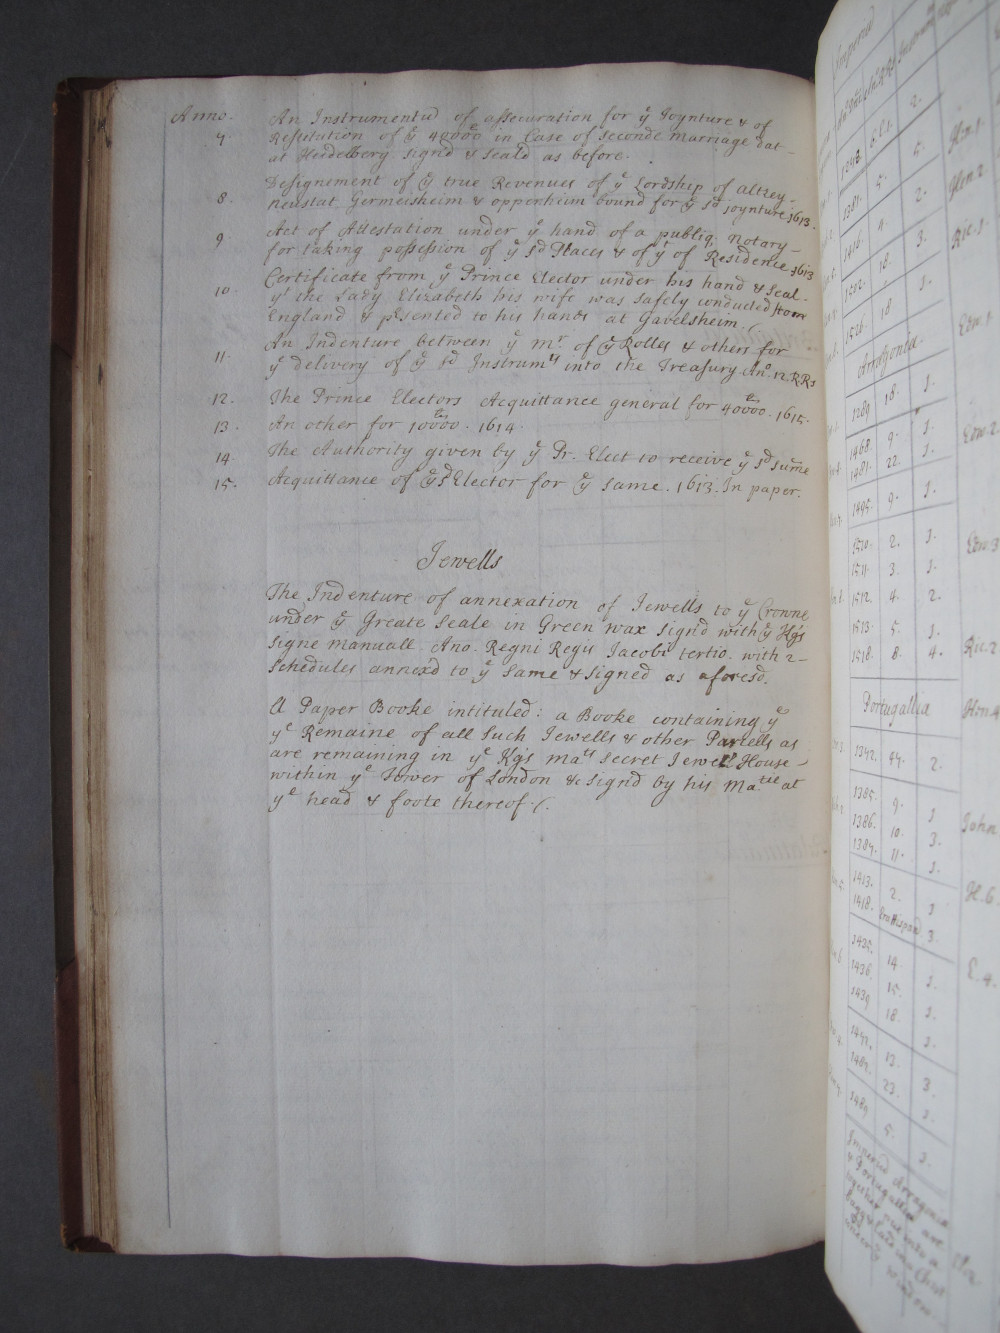 Anno. An Instrument of assecuration for yͤ Joynture & of
7. Restitution of yͤ 40000 in Case of Seconde Marriage dat-
at Heidelberg signd & Seald as before.
8. Designement of yͤ true Revenues of yͤ Lordship of Altzey-
neustat Germersheim & oppenheim bound for yͤ sd joynture 1613.
9. Act of Attestation under yͤ hand of a publiq. Notary-
for taking possession of yͤ sd Places & of yͤ of Residence 1613
10. Certificate from yͤ Prince Elector under his hand & Seal-
yt the Lady Elizabeth his wife was safely conducted from
England & psented to his hands at Gavelsheim.
11. An Indenture between yͤ Mr of yͤ Rolles & others for
yͤ delivery of yͤ sd Instrumts into the Treasury Ano. 12. RRs
12. The Prince Electors Acquittance general for 40000. 1615.
13. An other for 10000. 1614.
14. The Authority given by yͤ Pr. Elect to receive yͤ sd sume
15. Acquittance of yͤ sd Elector for yͤ same. 1613. In paper.
Jewells
The Indenture of annexation of Jewells to yͤ Crowne
under yͤ Greate Seale in Green wax signd with yͤ Kgs
Signe manuall. Ano. Regni Regis Jacobi tertio. with 2-
Schedules annexd to yͤ same & signed as aforesd.
A Paper Booke intituled: a Booke containing yͤ
yͤ Remaine of all such Jewells & other Parcells as
are remaining in yͤ Kgs mats secret Jewell House-
within yͤ Tower of London & signd by his Matie at
yͤ head & foote thereof.
Imperial
1298. 6.S.1. 2.
1381. 5. 5.
1416. 4. 2.
1502. 18. 3.
1526. 18 1.
Arragonia
1289 18. 1.
1468. 9. 1.
1481. 22. 1.
1495. 9. 1.
1510. 2. 1.
1511. 3. 1.
1512. 4. 2.
1513. 5. 1.
1518. 8. 4.
Portugallia
1342. 44. 2.
1385. 9. 1
1386. 10. 3.
1387. 11. 1.
1413. 2. 1
1418. 3.
1425. 14 1.
1436. 15. 1.
1439 18. 1.
1472. 13. 3.
1482. 23. 1.
1489 5. 1.
Imperial Arragonia
& Portugallia are
together put into a
Hen. 1.
Hen. 2.
Ric. 1.
Edw. 1.
Edw. 2.
Edw. 3
Ric. 2.
Hen. 4
John
H. 6.
E. 4.